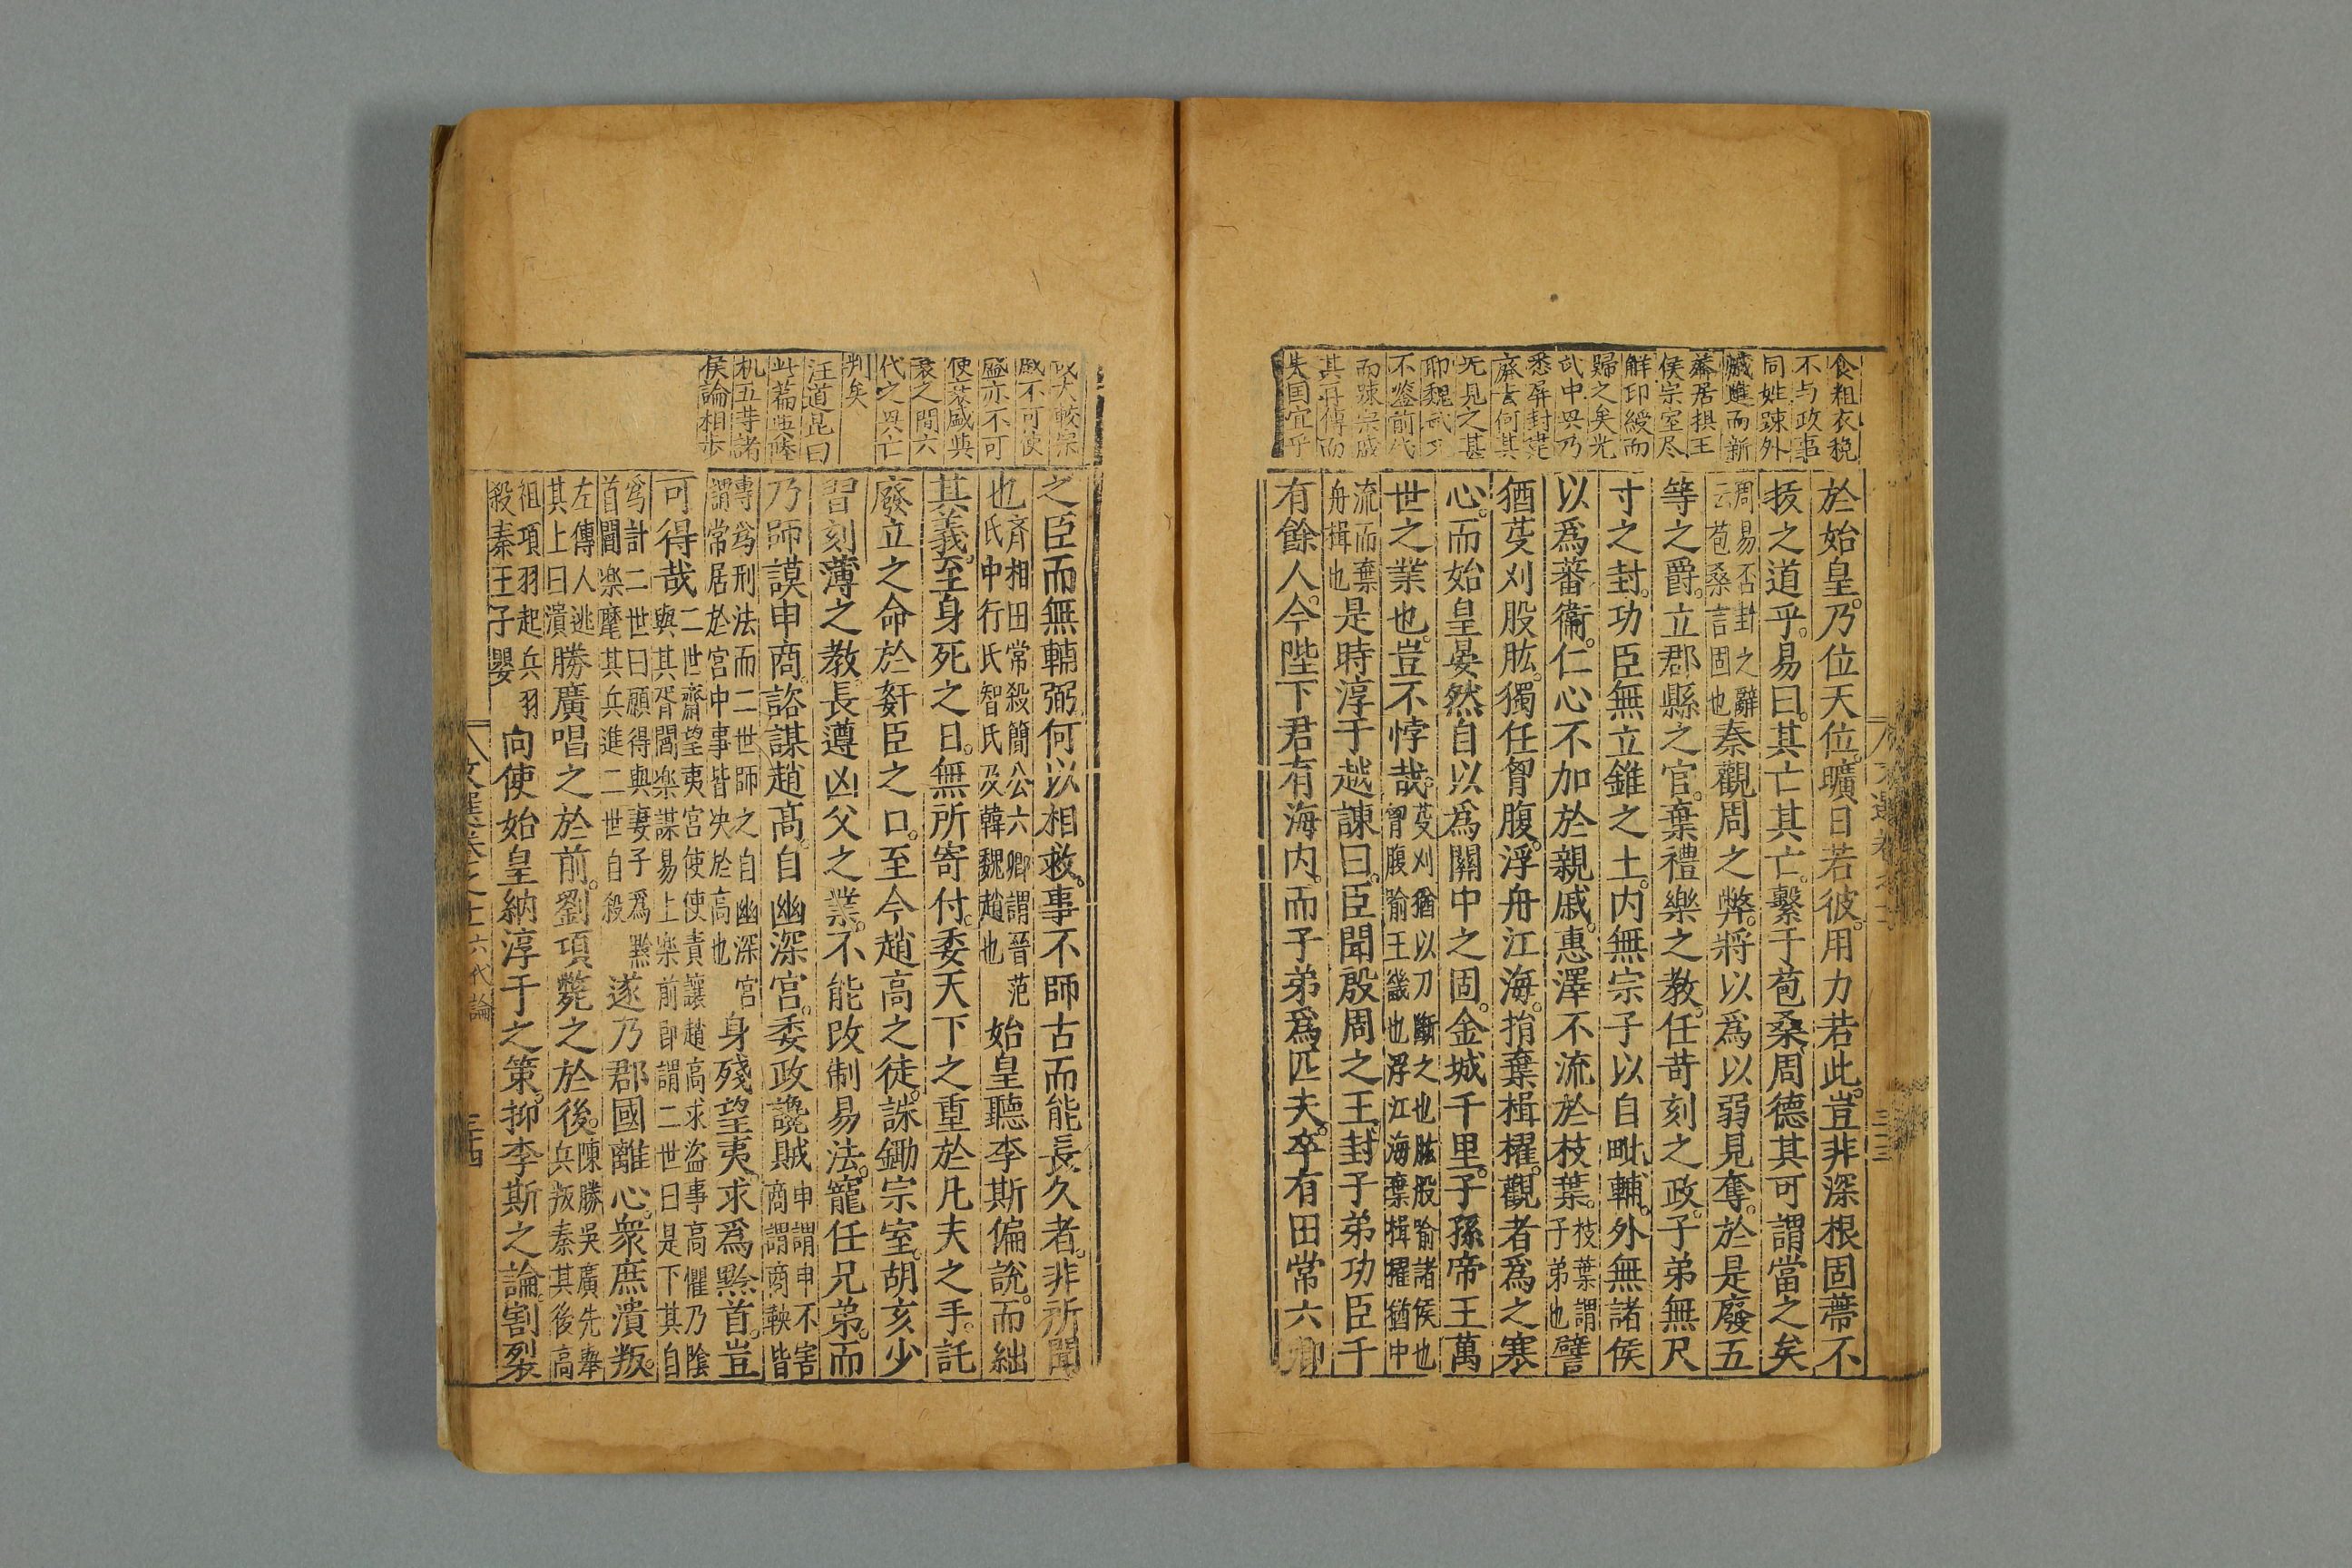 食粗衣稅
不与政事
同姓踈外
戚進而新
莽居摂王
侯宗室尽
解印綬而
歸之矣光
武中興乃
悉屏封建
齊去何其
无見之甚
耶魏武又
不鑒前代
而踈宗戚
其再傳而
失国宜乎
於始皇乃位天位曠日若彼用力若此豈非深根固蔕不
拔之道乎易曰其亡其亡繫于苞桑周德其可謂當之矣
周易否卦之辭
云苞桑言固也
秦觀周之弊將以為以弱見奪於是廢五
等之爵立郡縣之官棄禮樂之教任苛刻之政子弟無尺
寸之封功臣無立錐之土内無宗子以自毗輔外無諸侯
以爲蕃衞仁心不加於親戚惠澤不流於枝葉
枝葉謂
子弟也
譬
猶芟刈股肱獨任胷腹浮舟江海捐棄楫櫂觀者爲之寒
心而始皇晏然自以爲關中之固金城千里子孫帝王萬
世之業也豈不悖哉
芟刈猶以刀斷之也肱股喻諸侯也
胷腹喻王畿也浮江海棄楫櫂猶中
流而棄
舟楫也
是時淳于越諫曰臣聞殷周之王封子弟功臣千
有餘人今陛下君有海内而子弟爲匹夫卒有田常六卿
政大較宗
戚不可使
盛亦不可
使衰盛與
衰之間六
代之興亡
判矣
汪道昆曰
此篇與陸
机五等諸
侯論相步
之臣而無輔弼何以相救事不師古而能長久者非所聞
也
齊相田常殺簡公六卿謂晉范
氏中行氏智氏及韓魏趙也
始皇聽李斯偏說而絀
其義至身死之日無所寄付委天下之重於凡夫之手託
廢立之命於姧臣之口至今趙高之徒誅鋤宗室胡亥少
習刻薄之教長遵凶父之業不能改制易法寵任兄弟而
乃師謨申商諮謀趙高自幽深宮委政讒賊
申謂申不害
商謂商鞅皆
專爲刑法而二世師之自幽深宮
謂常居於宮中事皆决於高也
身殘望夷求爲黔首豈
可得哉
二世齋望夷宮使使責讓趙高求盗事高懼乃陰
與其胥閻楽謀易上楽前即謂二世曰是下其自
爲計二世曰願得與妻子爲黔
首閻楽麾其兵進二世自殺
遂乃郡國離心衆庶潰叛
左傳人逃
其上曰潰
勝廣唱之於前劉項斃之於後
陳勝吳廣先舉
兵叛秦其後高
祖項羽起兵羽
殺秦王子嬰
向使始皇納淳于之策抑李斯之論割裂
六代論
三十四